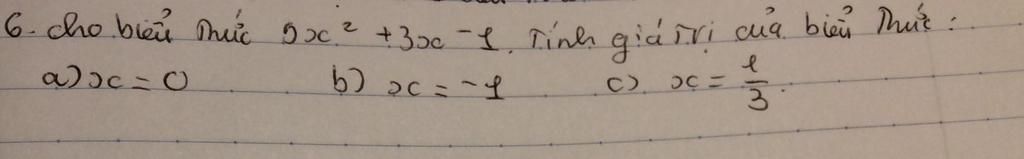 6. Cho biểu thức 5x² + 3x - 1. Tính giá trị của biểu thức :
a) x = 0 b) x = -1 c) x = 1/3.